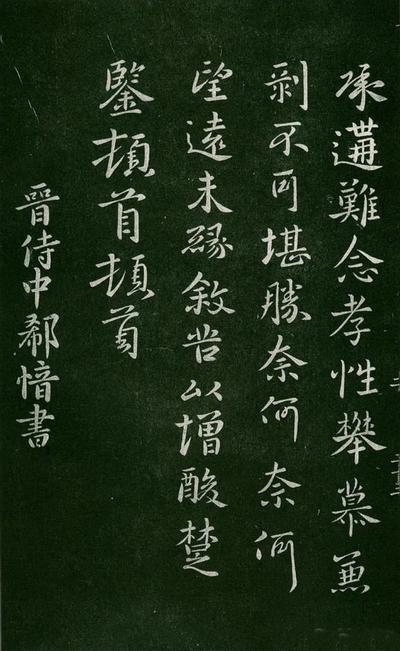 承遘難念孝性攀慕兼
剝不可堪勝奈何奈何
望遠未緣敘苦以增酸楚
鑒頓首頓首
晉侍中郗愔書